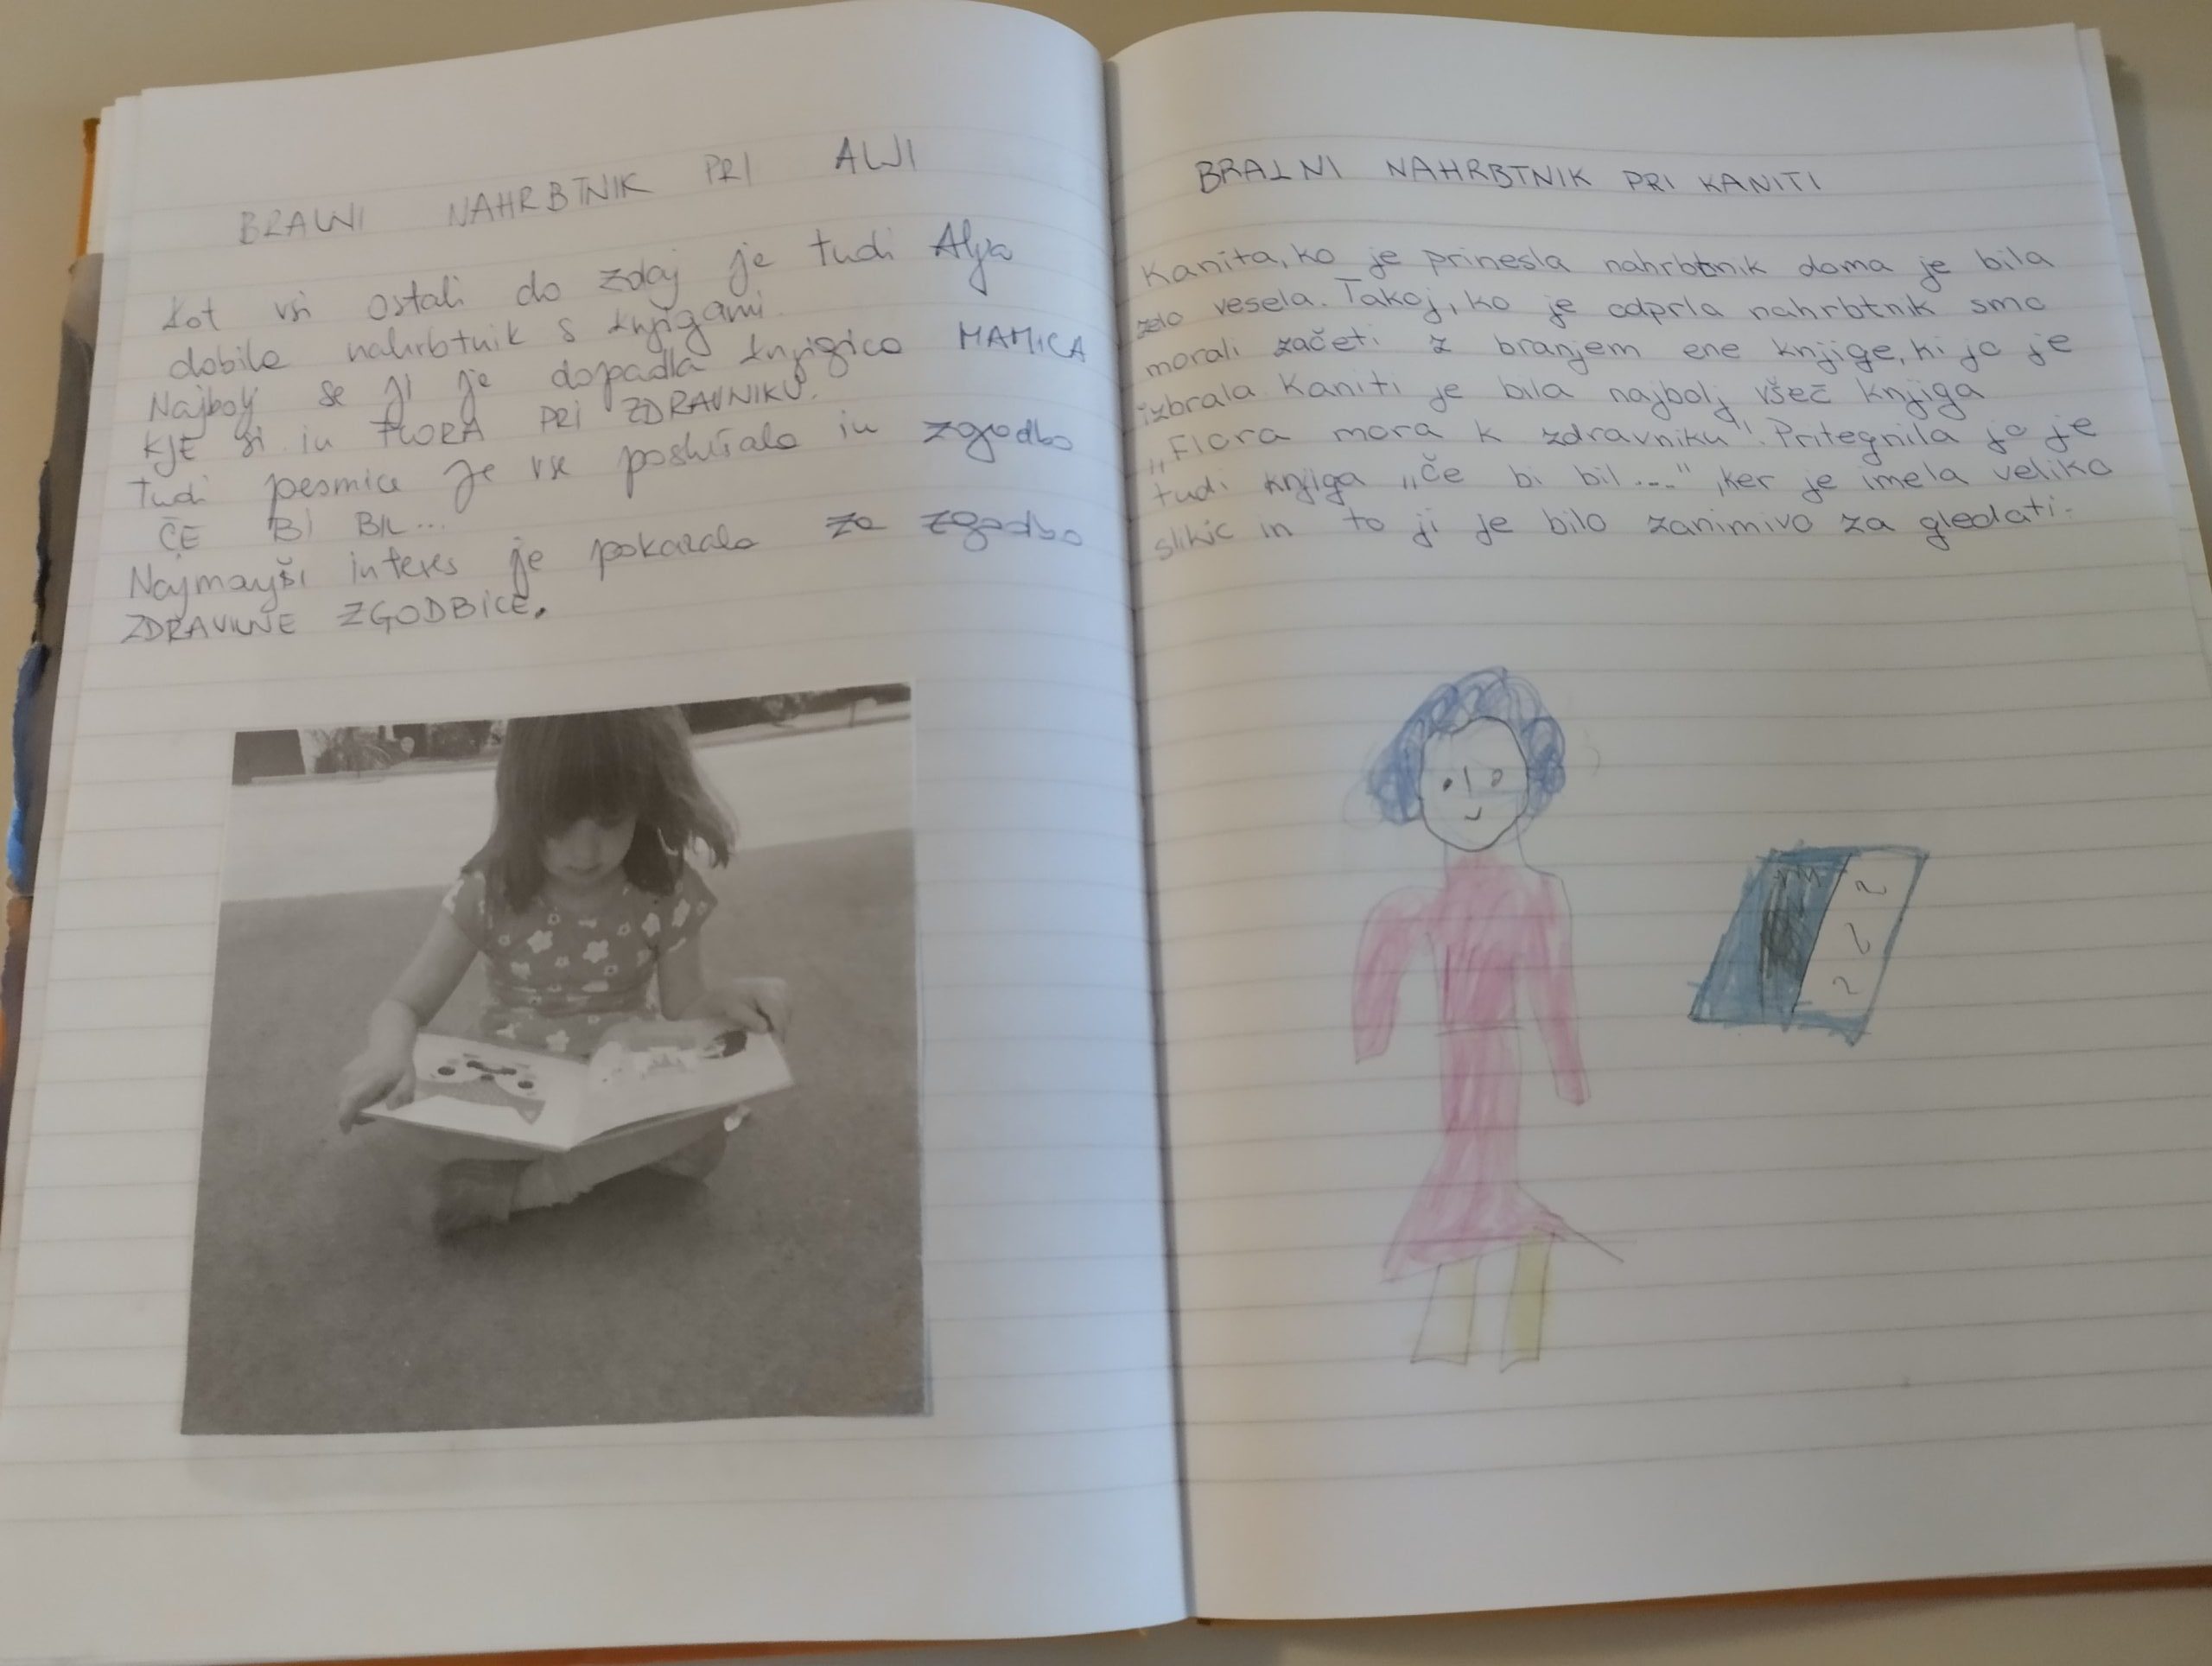 BRALNI NAHRBTNIK PRI ALJI
Kot vsi ostali do zdaj je tudi Alja
dobila nahrbtnik s knjigami.
Najbolj se ji je dopadla knjigica MAMICA
KJE SI in FLORA PRI ZDRAVNIKU.
Tudi pesmice je vse poslušala in zgodbo
ČE BI BIL...
Najmanjši interes je pokazala za zgodbo
ZDRAVILNE ZGODBICE.
BRALNI NAHRBTNIK PRI KANITI
Kanita, ko je prinesla nahrbtnik doma je bila
zelo vesela. Takoj, ko je odprla nahrbtnik smo
morali začeti z branjem ene knjige, ki jo je
izbrala. Kaniti je bila najbolj všeč knjiga
„Flora mora k zdravniku". Pritegnila jo je
tudi knjiga „Če bi bil...", ker je imela veliko
slikic in to ji je bilo zanimivo za gledati.